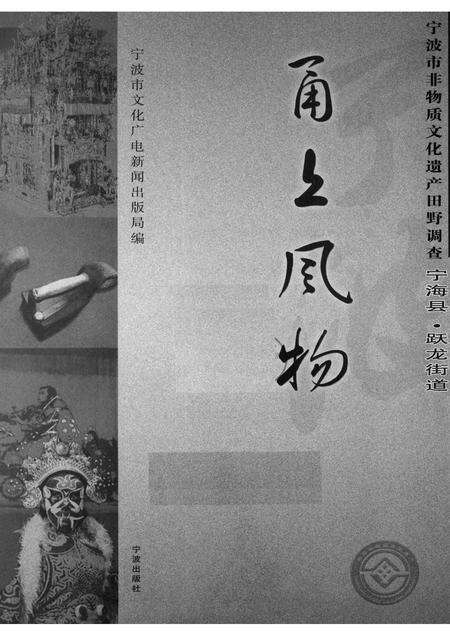 宁波市非物质文化遗产田野调查
宁海县·跃龙街道
甬上风物
宁波市文化广电新闻出版局编
宁波出版社